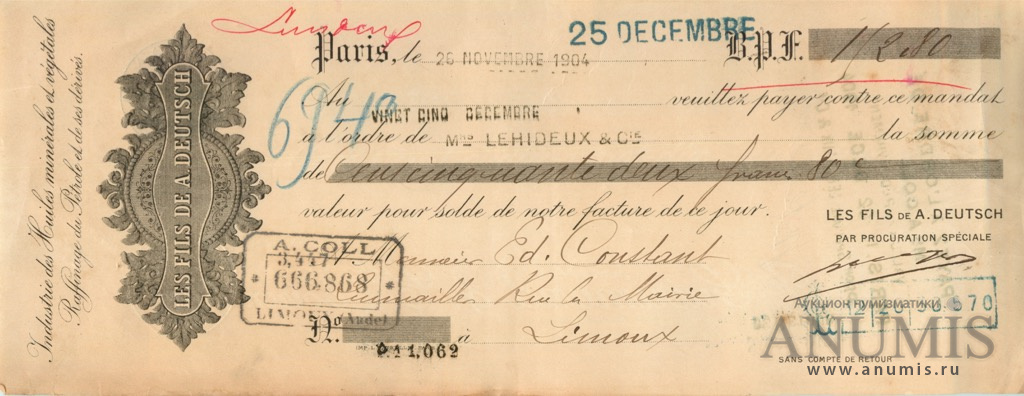 Industrie des Huiles minérales et végétales
Raffinage du Pétrole et de ses dérivés.
LES FILS DE A. DEUTSCH
Limoux
25 DECEMBRE
Paris, le 26 NOVEMBRE 1904 B.P.F. 152.80
6949
Au VINGT CINQ DECEMBRE veuillez payer contre ce mandat
à l'ordre de MM. LEHIDEUX & Cie la somme
de Cent cinquante deux francs 80 c
valeur pour solde de notre facture de ce jour.
LES FILS DE A. DEUTSCH
PAR PROCURATION SPÉCIALE
A. COLL
3,447
666.868
LIMOUX (Aude)
Monsieur Ed. Constant
Rue la Mairie
à Limoux
No. P11,062
570
SANS COMPTE DE RETOUR
Аукцион нумизматики
ANUMIS
www.anumis.ru